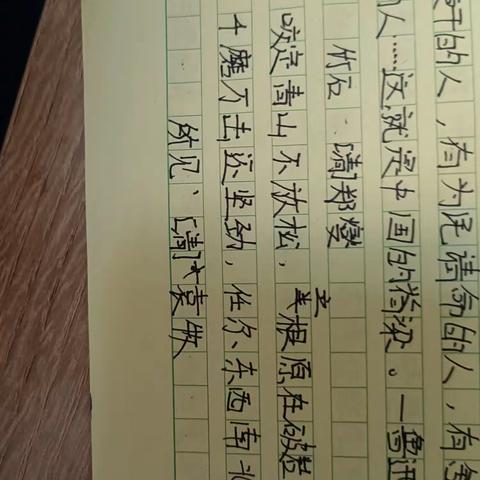 干的人，有为民请命的人，有舍
的人……这就是中国的脊梁。一鲁迅
竹石、[清]郑燮
咬定青山不放松，立根原在破岩
千磨万击还坚劲，任尔东西南北
所见、[清]袁枚